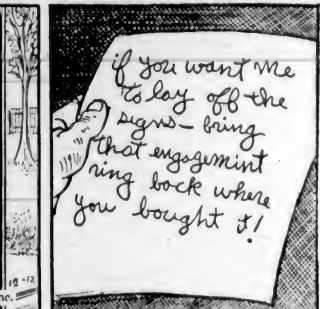 if you want me
to lay off the
signs— bring
that engagemint
ring back where
you bought it!
12-12
nc.